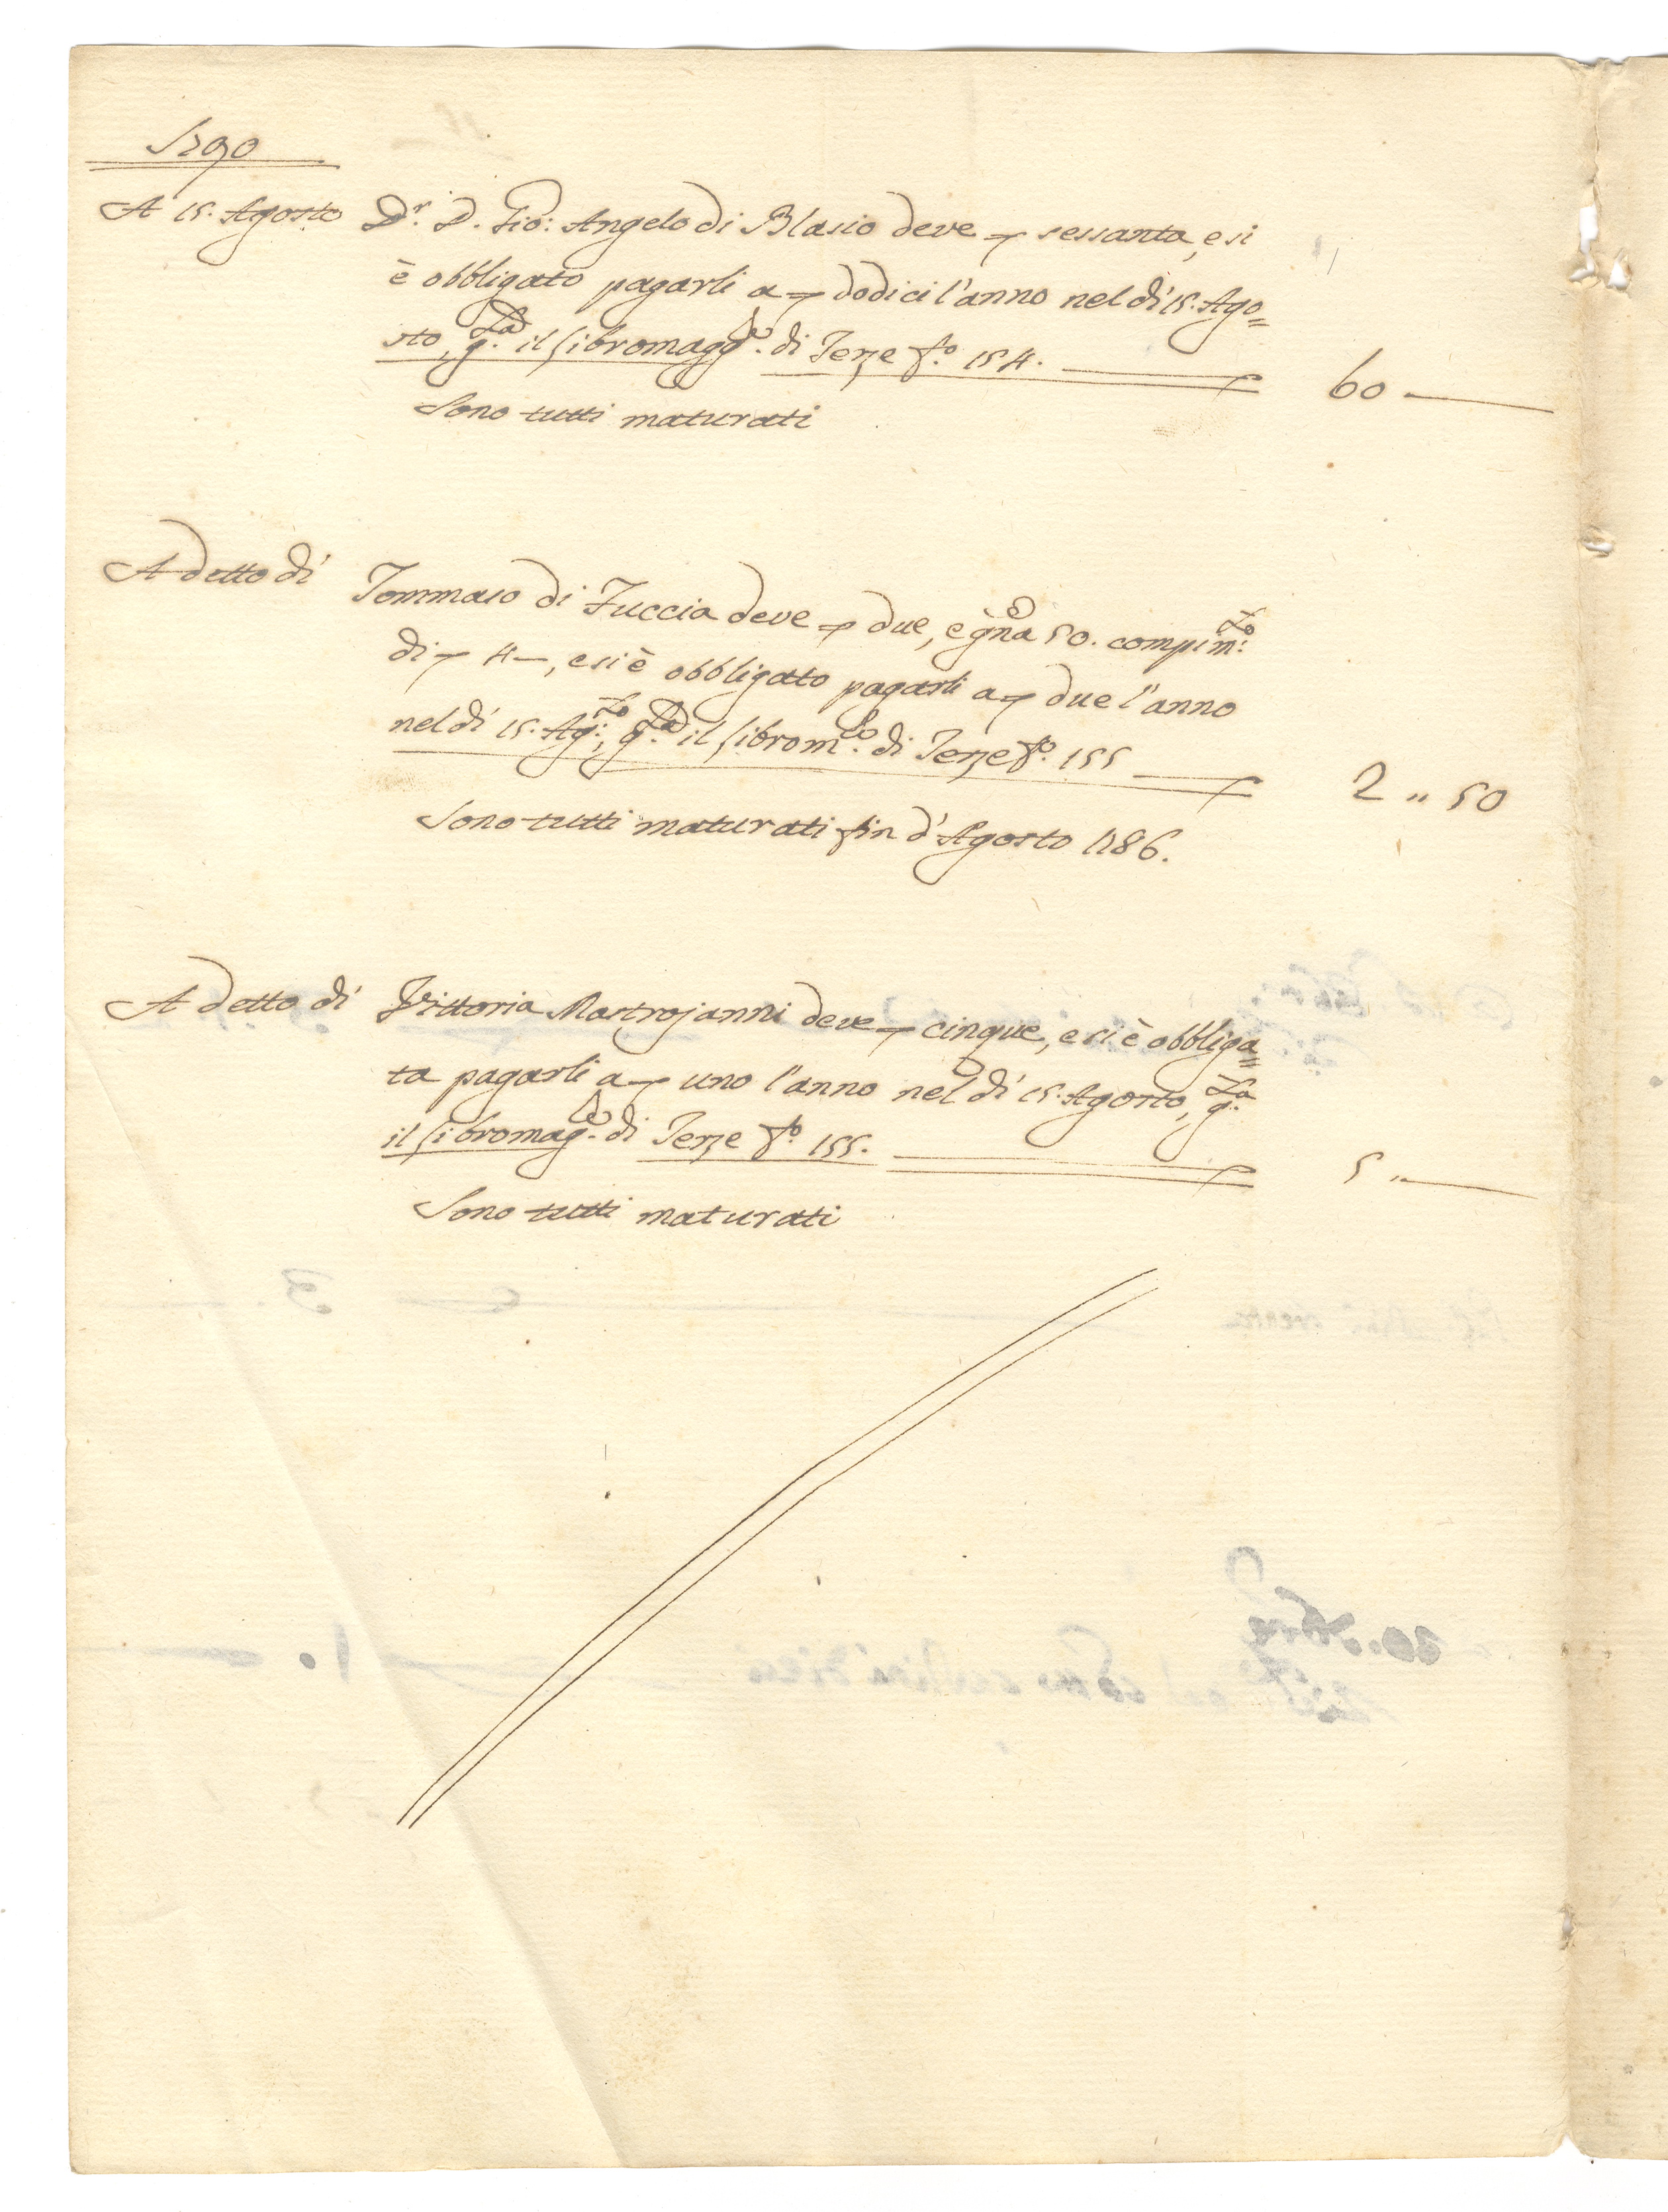 1790
A 15. Agosto Dr. D. Gio: Angelo di Blasio deve sessanta, e si
è obbligato pagarli a dodici l'anno nel dì 15. Ago=
sto, gta. il libro magge. di Terze fo. 154. 60 —
Sono tutti maturati
A detto dì Tommaso di Fuccia deve due, e gna 50. compimto:
di 4—, e si è obbligato pagarli a due l'anno
nel dì 15. Agto:, gta. il libro me. di Terze fo. 155 2 " 50
Sono tutti maturati fin d'Agosto 1786.
A detto dì Vittoria Mastrojanni deve cinque, e si è obbliga=
ta pagarli a uno l'anno nel dì 15. Agosto, gta.
il libro mage. di Terze fo. 155. 5 " —
Sono tutti maturati